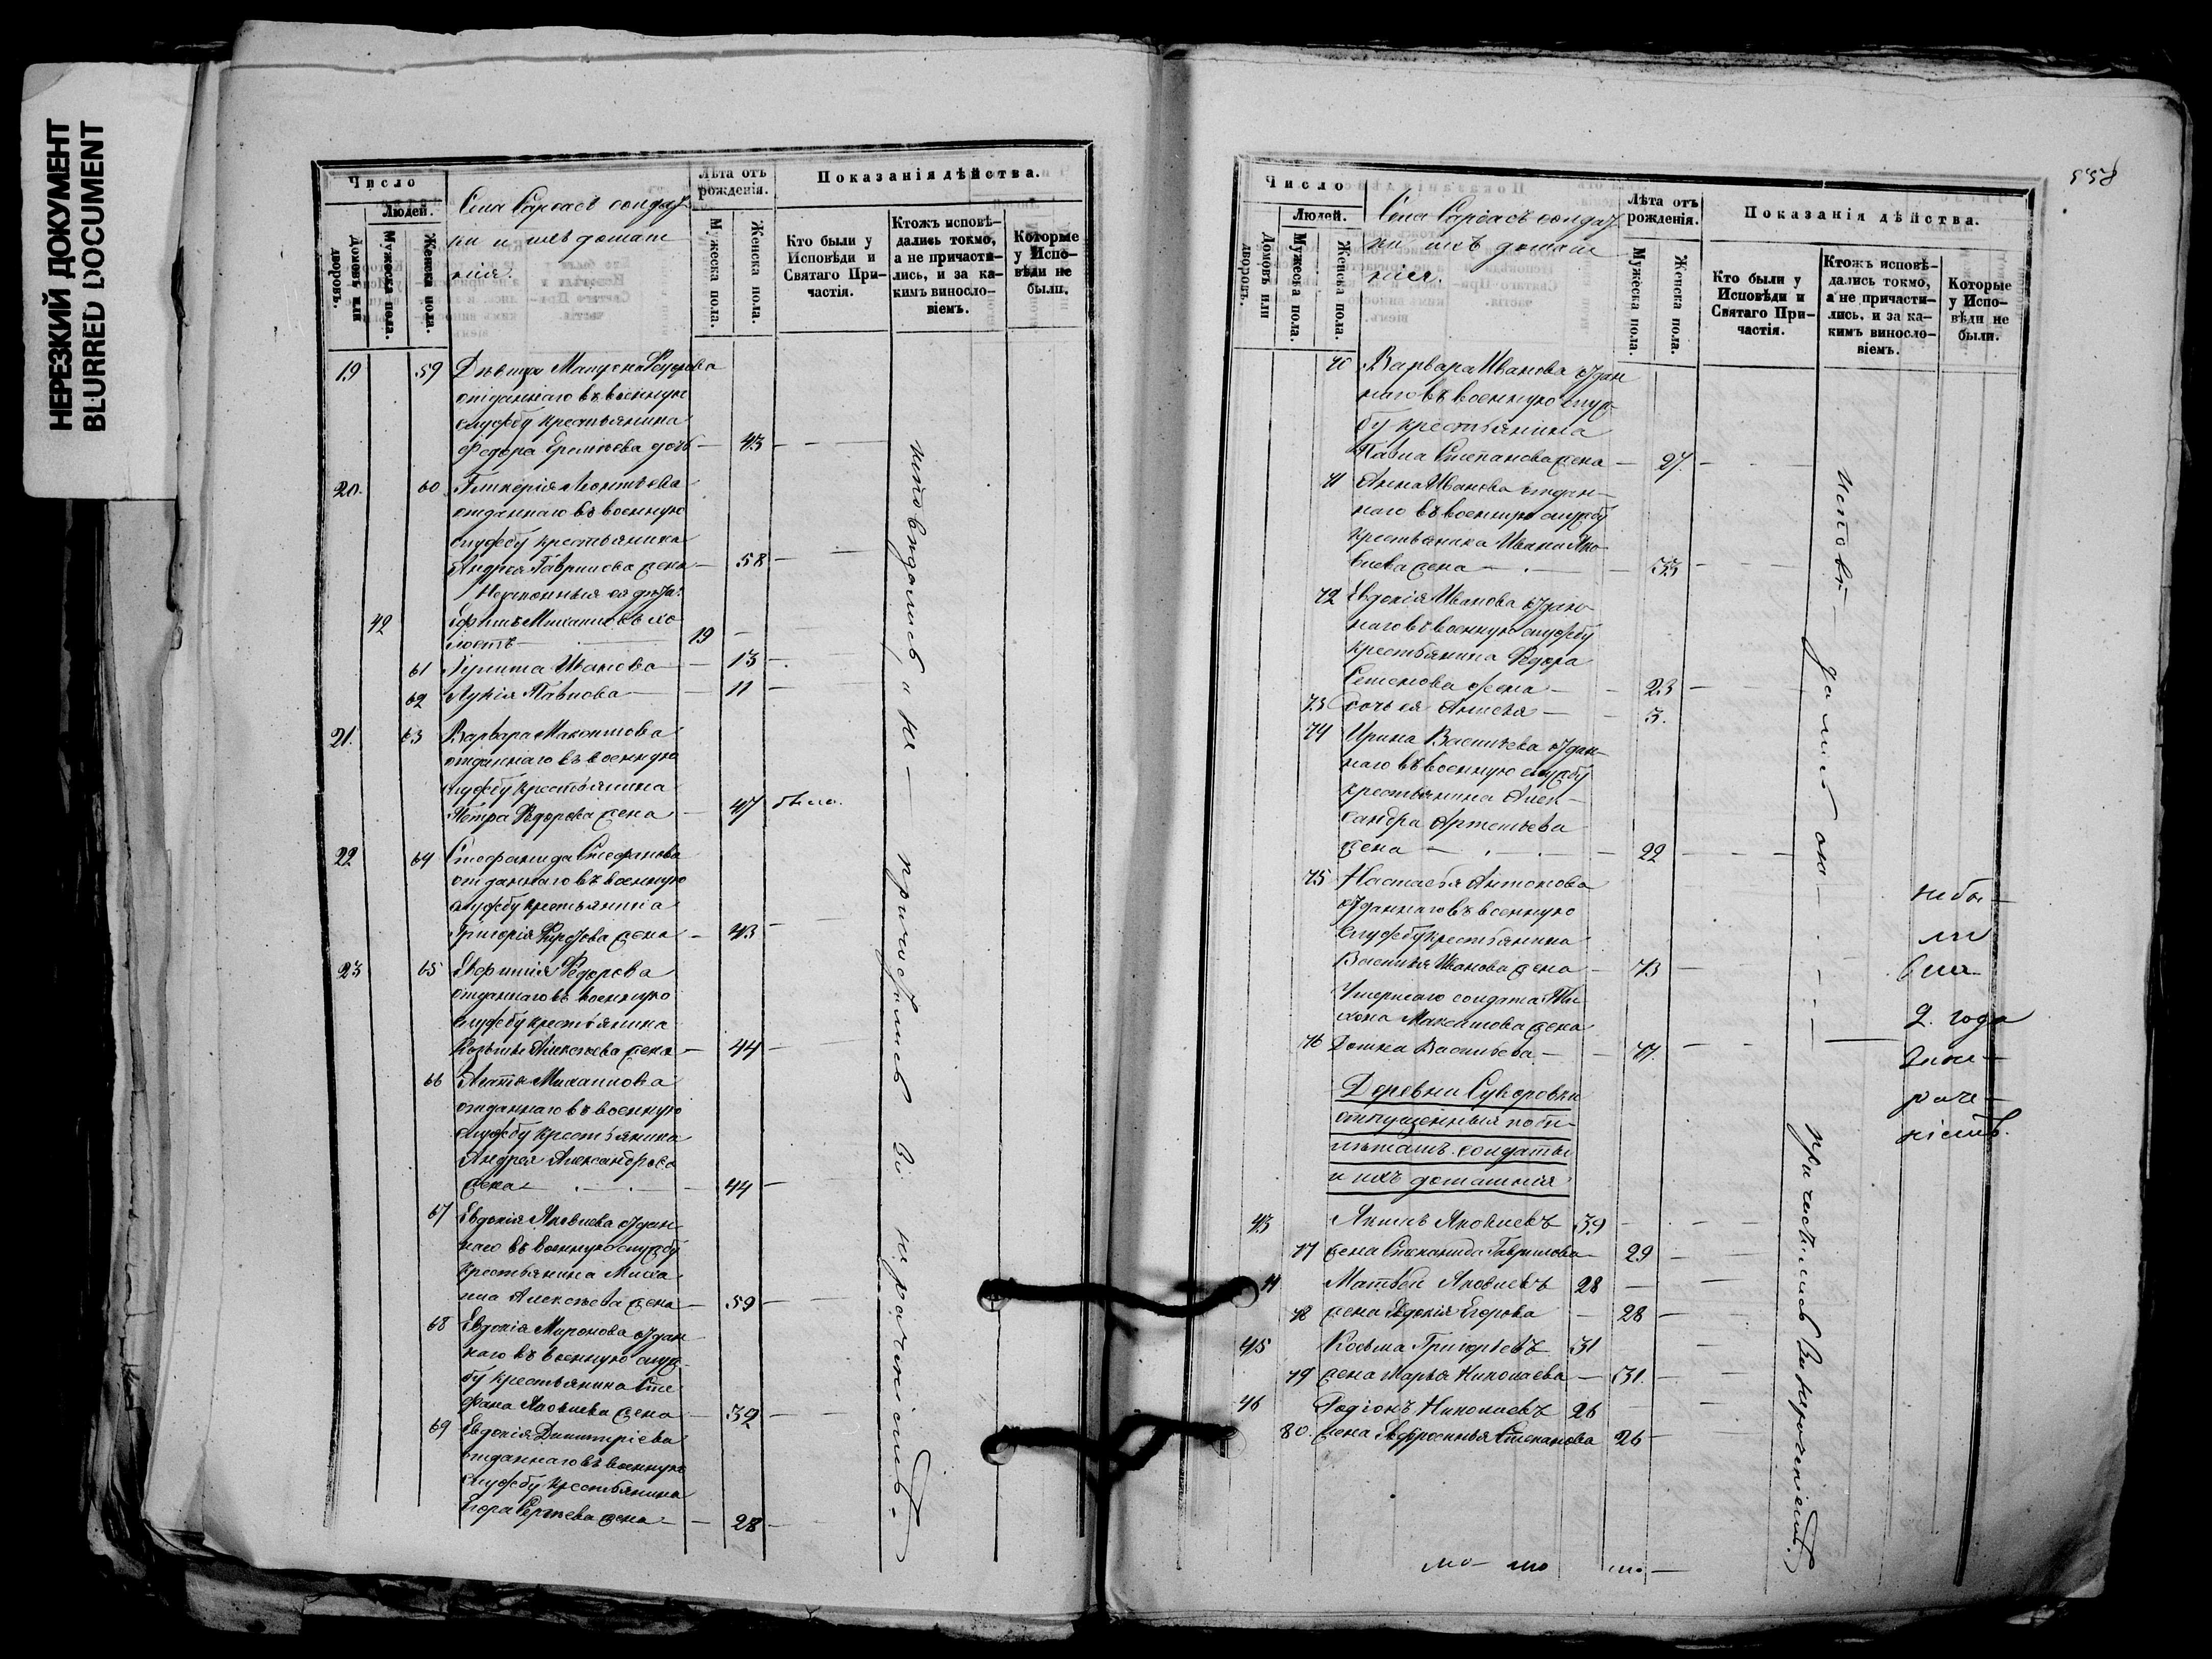 НЕРЕЗКИЙ ДОКУМЕНТ
BLURRED DOCUMENT
Число
Людей.
Домовъ или дворовъ.
Мужеска пола.
Женска пола.
Села солдат
ки и ихъ домаш
нія.
Лѣта отъ рожденія.
Мужеска пола.
Женска пола.
Показанія дѣйства.
Кто были у Исповѣди и Святаго Причастія.
Ктожъ исповѣдались токмо, а не причастились, и за какимъ винословіемъ.
Которые у Исповѣди не были.
19 59 Дѣвица Ѳедорова
отданнаго въ военную
службу крестьянина
Федора дочь — 43
20. 60 Гликерія Леонтьева
отданнаго въ военную
службу крестьянина
Андрея Гаврилова жена — 58
Незаконныя ея дѣти:
42 Ефимъ Михайловъ хо
лостъ — 19
61 Улита Иванова — 13
62 Лукія Павлова — 11
21. 63 Варвара
отданнаго въ военную
службу крестьянина
Петра Ѳедорова жена — 47 была.
22 64 Стефанида Стефанова
отданнаго въ военную
службу крестьянина
Григорія жена — 43
23 65 Евфимія Ѳедорова
отданнаго въ военную
службу крестьянина
Козьмы Алексѣева жена — 44
66 Агафья Михаилова
отданнаго въ военную
службу крестьянина
Андрея Александрова
жена — 44
67 Евдокія Яковлева отдан
наго въ военную службу
крестьянина Миха
ила Алексѣева жена — 59
68 Евдокія Миронова отдан
наго въ военную служ
бу крестьянина Сте
фана Яковлева жена — 32
69 Евдокія Димитріева
отданнаго въ военную
службу крестьянина
Егора Сергѣева жена — 28
исповѣдались а не причастились за нераченіемъ.
Число
Людей.
Домовъ или дворовъ.
Мужеска пола.
Женска пола.
Села солдат
ки ихъ домаш
нія.
Лѣта отъ рожденія.
Мужеска пола.
Женска пола.
Показанія дѣйства.
Кто были у Исповѣди и Святаго Причастія.
Ктожъ исповѣдались токмо, а не причастились, и за какимъ винословіемъ.
Которые у Исповѣди не были.
70 Варвара Иванова отдан
наго въ военную служ
бу крестьянина
Павла Степанова жена — 27.
71 Анна Иванова отдан
наго въ военную службу
крестьянина Ивана Яко
влева жена — 33
72 Евдокія Иванова отдан
наго въ военную службу
крестьянина Ѳедора
Семенова жена — 23
73 дочь ея Анисья — 3.
74 Ирина Васильева отдан
наго въ военную службу
крестьянина Алек
сандра Артемьева
жена — 22
75 Настасья Антонова
отданнаго въ военную
службу крестьянина
Василья Иванова жена — 73
Умершаго солдата Ти
хона Максимова жена
76 Домна Васильева — 47.
Деревни Суворовки
отпущенныя по би
летамъ солдаты
и ихъ домашнія
43 Яковлевъ 39
77 жена Степанида Гаврилова — 29
44 Матвей Яковлевъ 28
78 жена Евдокія Егорова — 28
45 Косьма Григорьевъ 31
79 жена Марья Николаева — 31.
46 Родіонъ Николаевъ 26
80. жена Евфросинья Степанова 26
небы
ли
2. года
раче
ніемъ.
причастились за нераченіемъ.